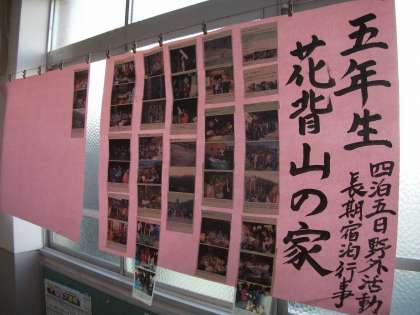 五年生
花背山の家
四泊五日野外活動
長期宿泊行事